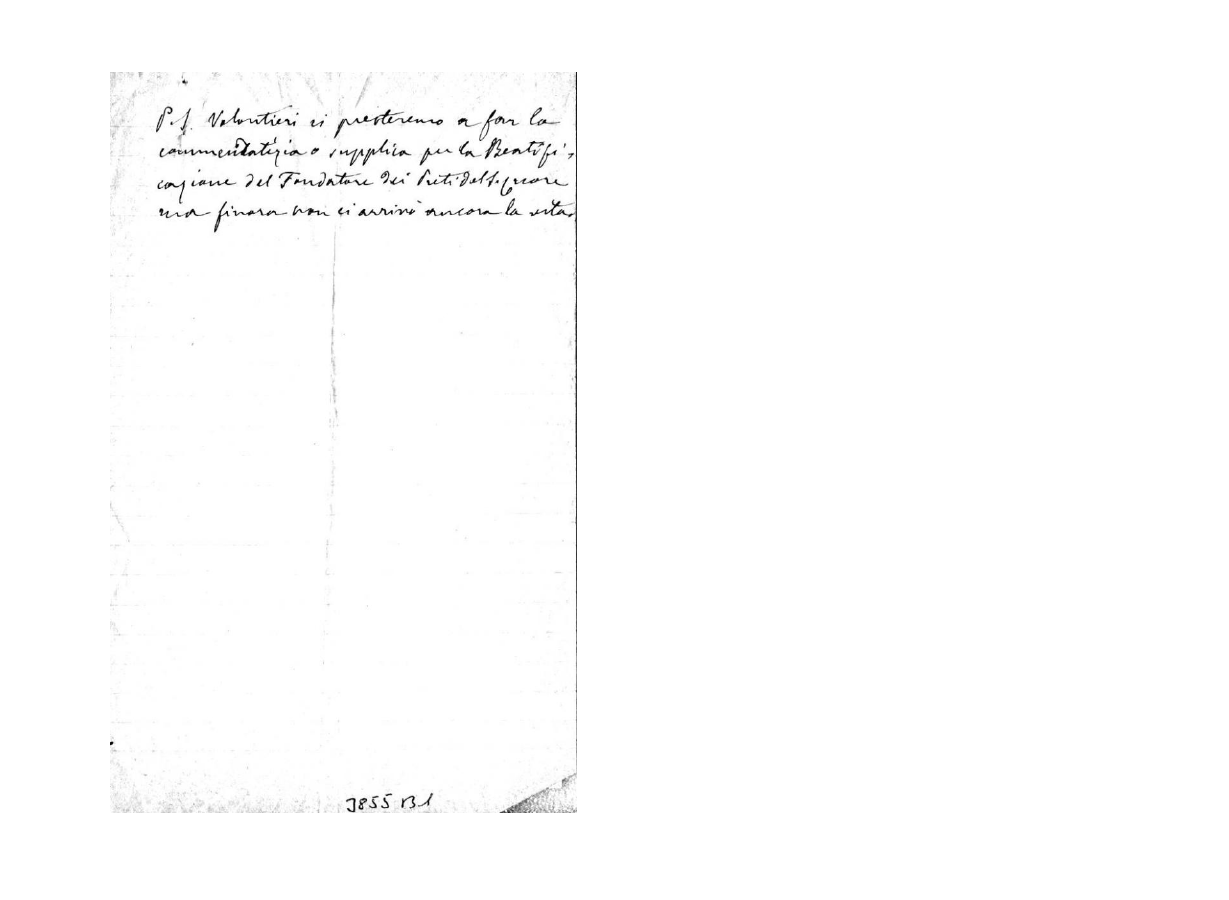 P.S. Volontieri ci presteremo a far la
commendatizia o supplica per la Beatifi-
cazione del Fondatore dei Preti del S. Cuore
ma finora non ci arrivò ancora la vita.
3855 B1